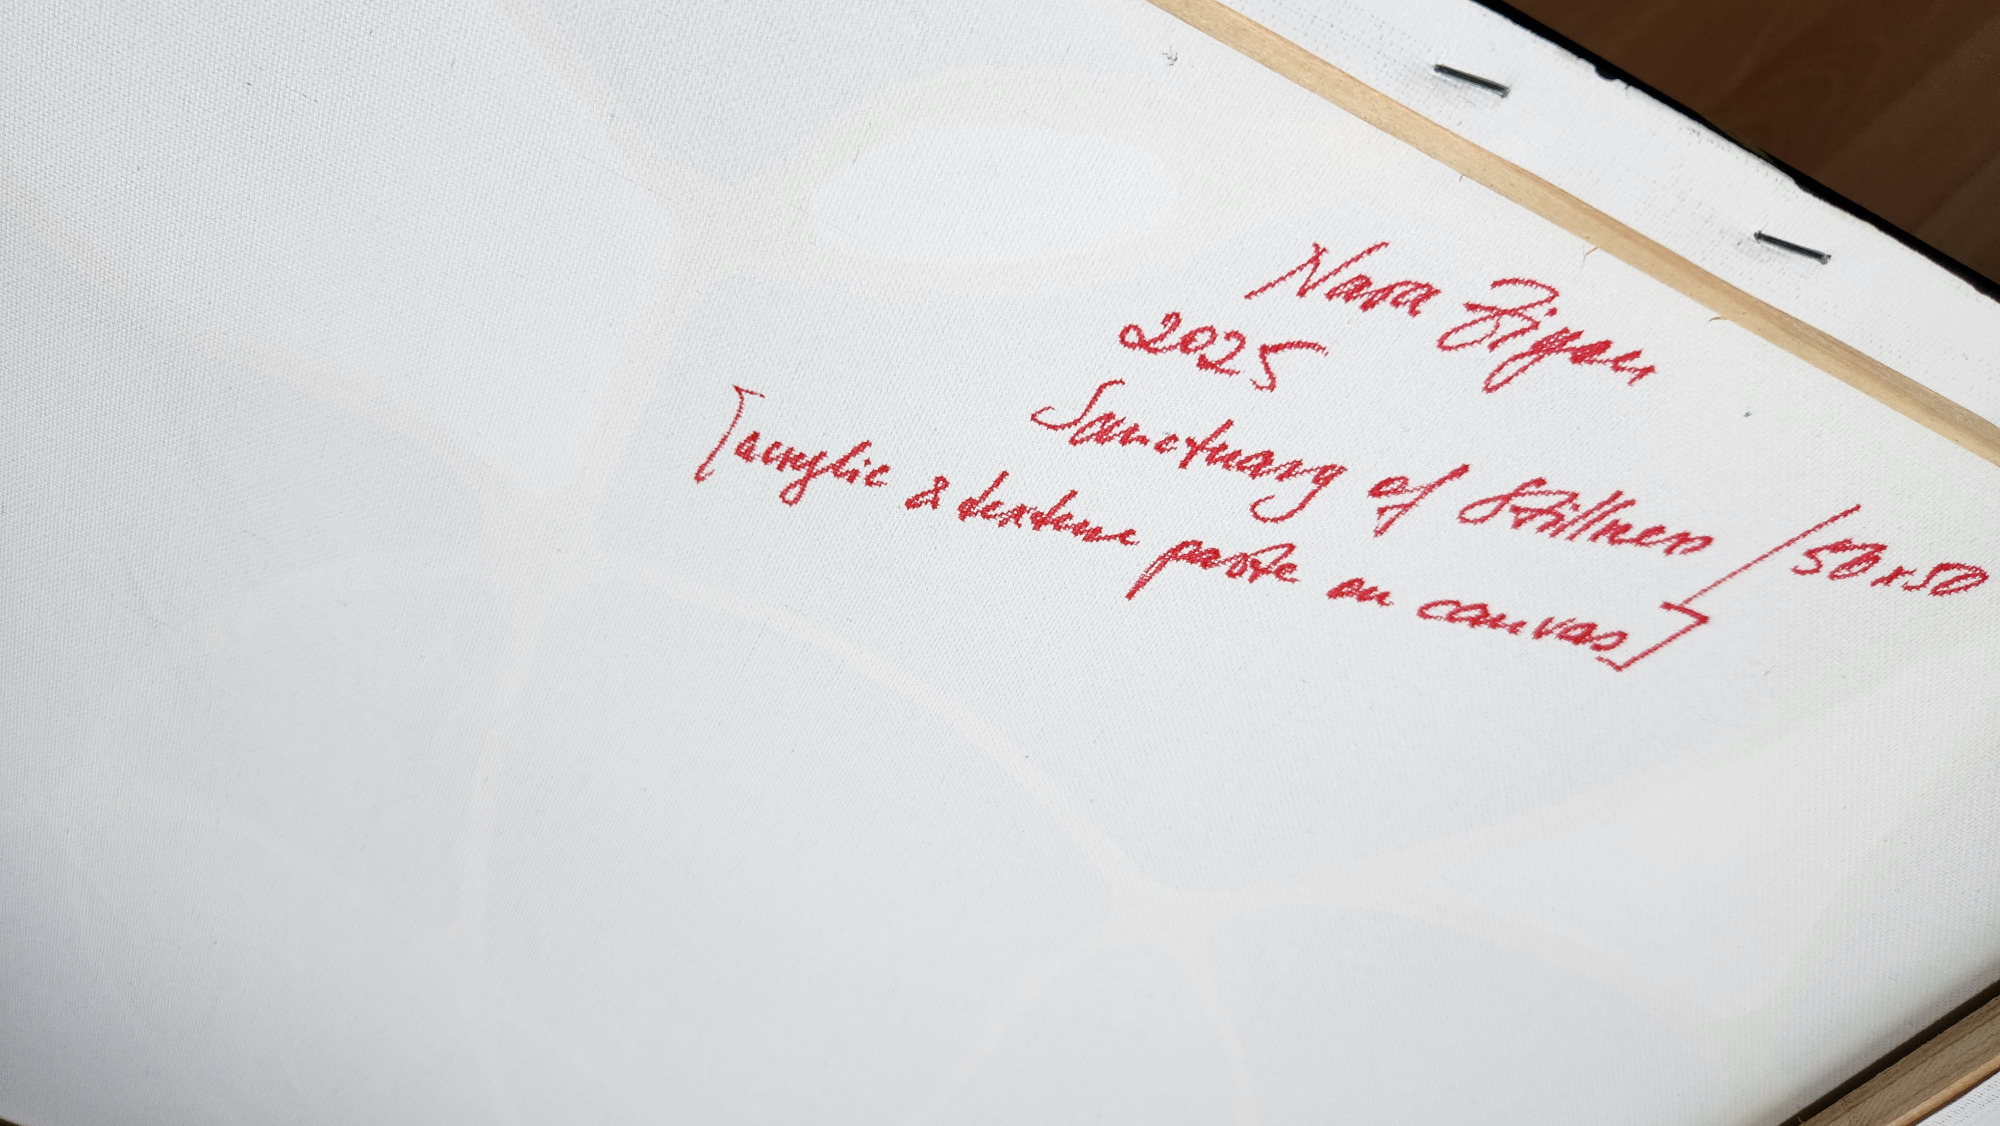 Nara Zigan
2025
Sanctuary of Stillness / 50x50
[acrylic & texture paste on canvas]